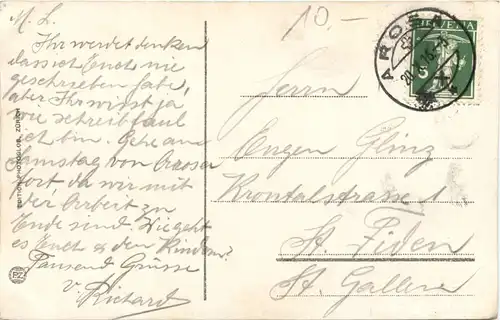 M. L.
Ihr werdet denken
dass ich Euch nie
geschrieben habe,
aber Ihr wisst ja
wie schreibfaul
ich bin. Gehe am
Samstag von Arosa
fort, da wir mit
der Arbeit zu
Ende send. Wie geht
es Euch & den Kindern?
Tausend Grüsse
v. Richard
10.-
HELVETIA
AROSA
5
Herrn
Eugen Glinz
Krontalstrasse 1
St. Fiden
St. Gallen
EDITION PHOTOGLOB
PZ